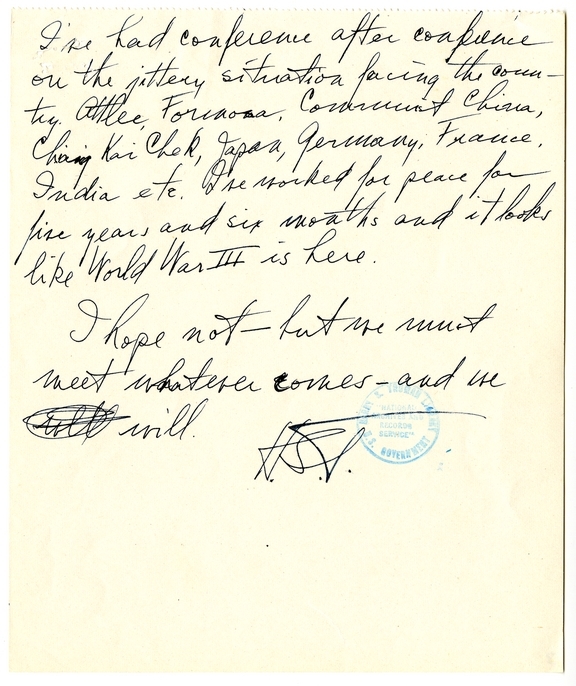 I've had conference after conference
on the jittery situation facing the coun-
try. Attlee, Formosa, Communist China,
Chiang Kai Chek, Japan, Germany, France,
India etc. I've worked for peace for
five years and six months and it looks
like World War III is here.
I hope not—but we must
meet whatever comes—and we
will.
H.S.T.
HARRY S. TRUMAN LIBRARY
NATIONAL
RECORDS
SERVICE
U.S. GOVERNMENT